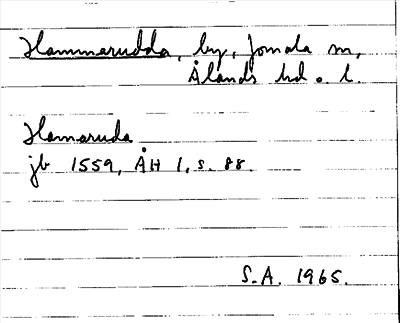 Hammarudda, by, Jomala sn,
Ålands hd o. l.
Hamaruda
jb 1559, ÅH 1, s. 88.
S.A. 1965.